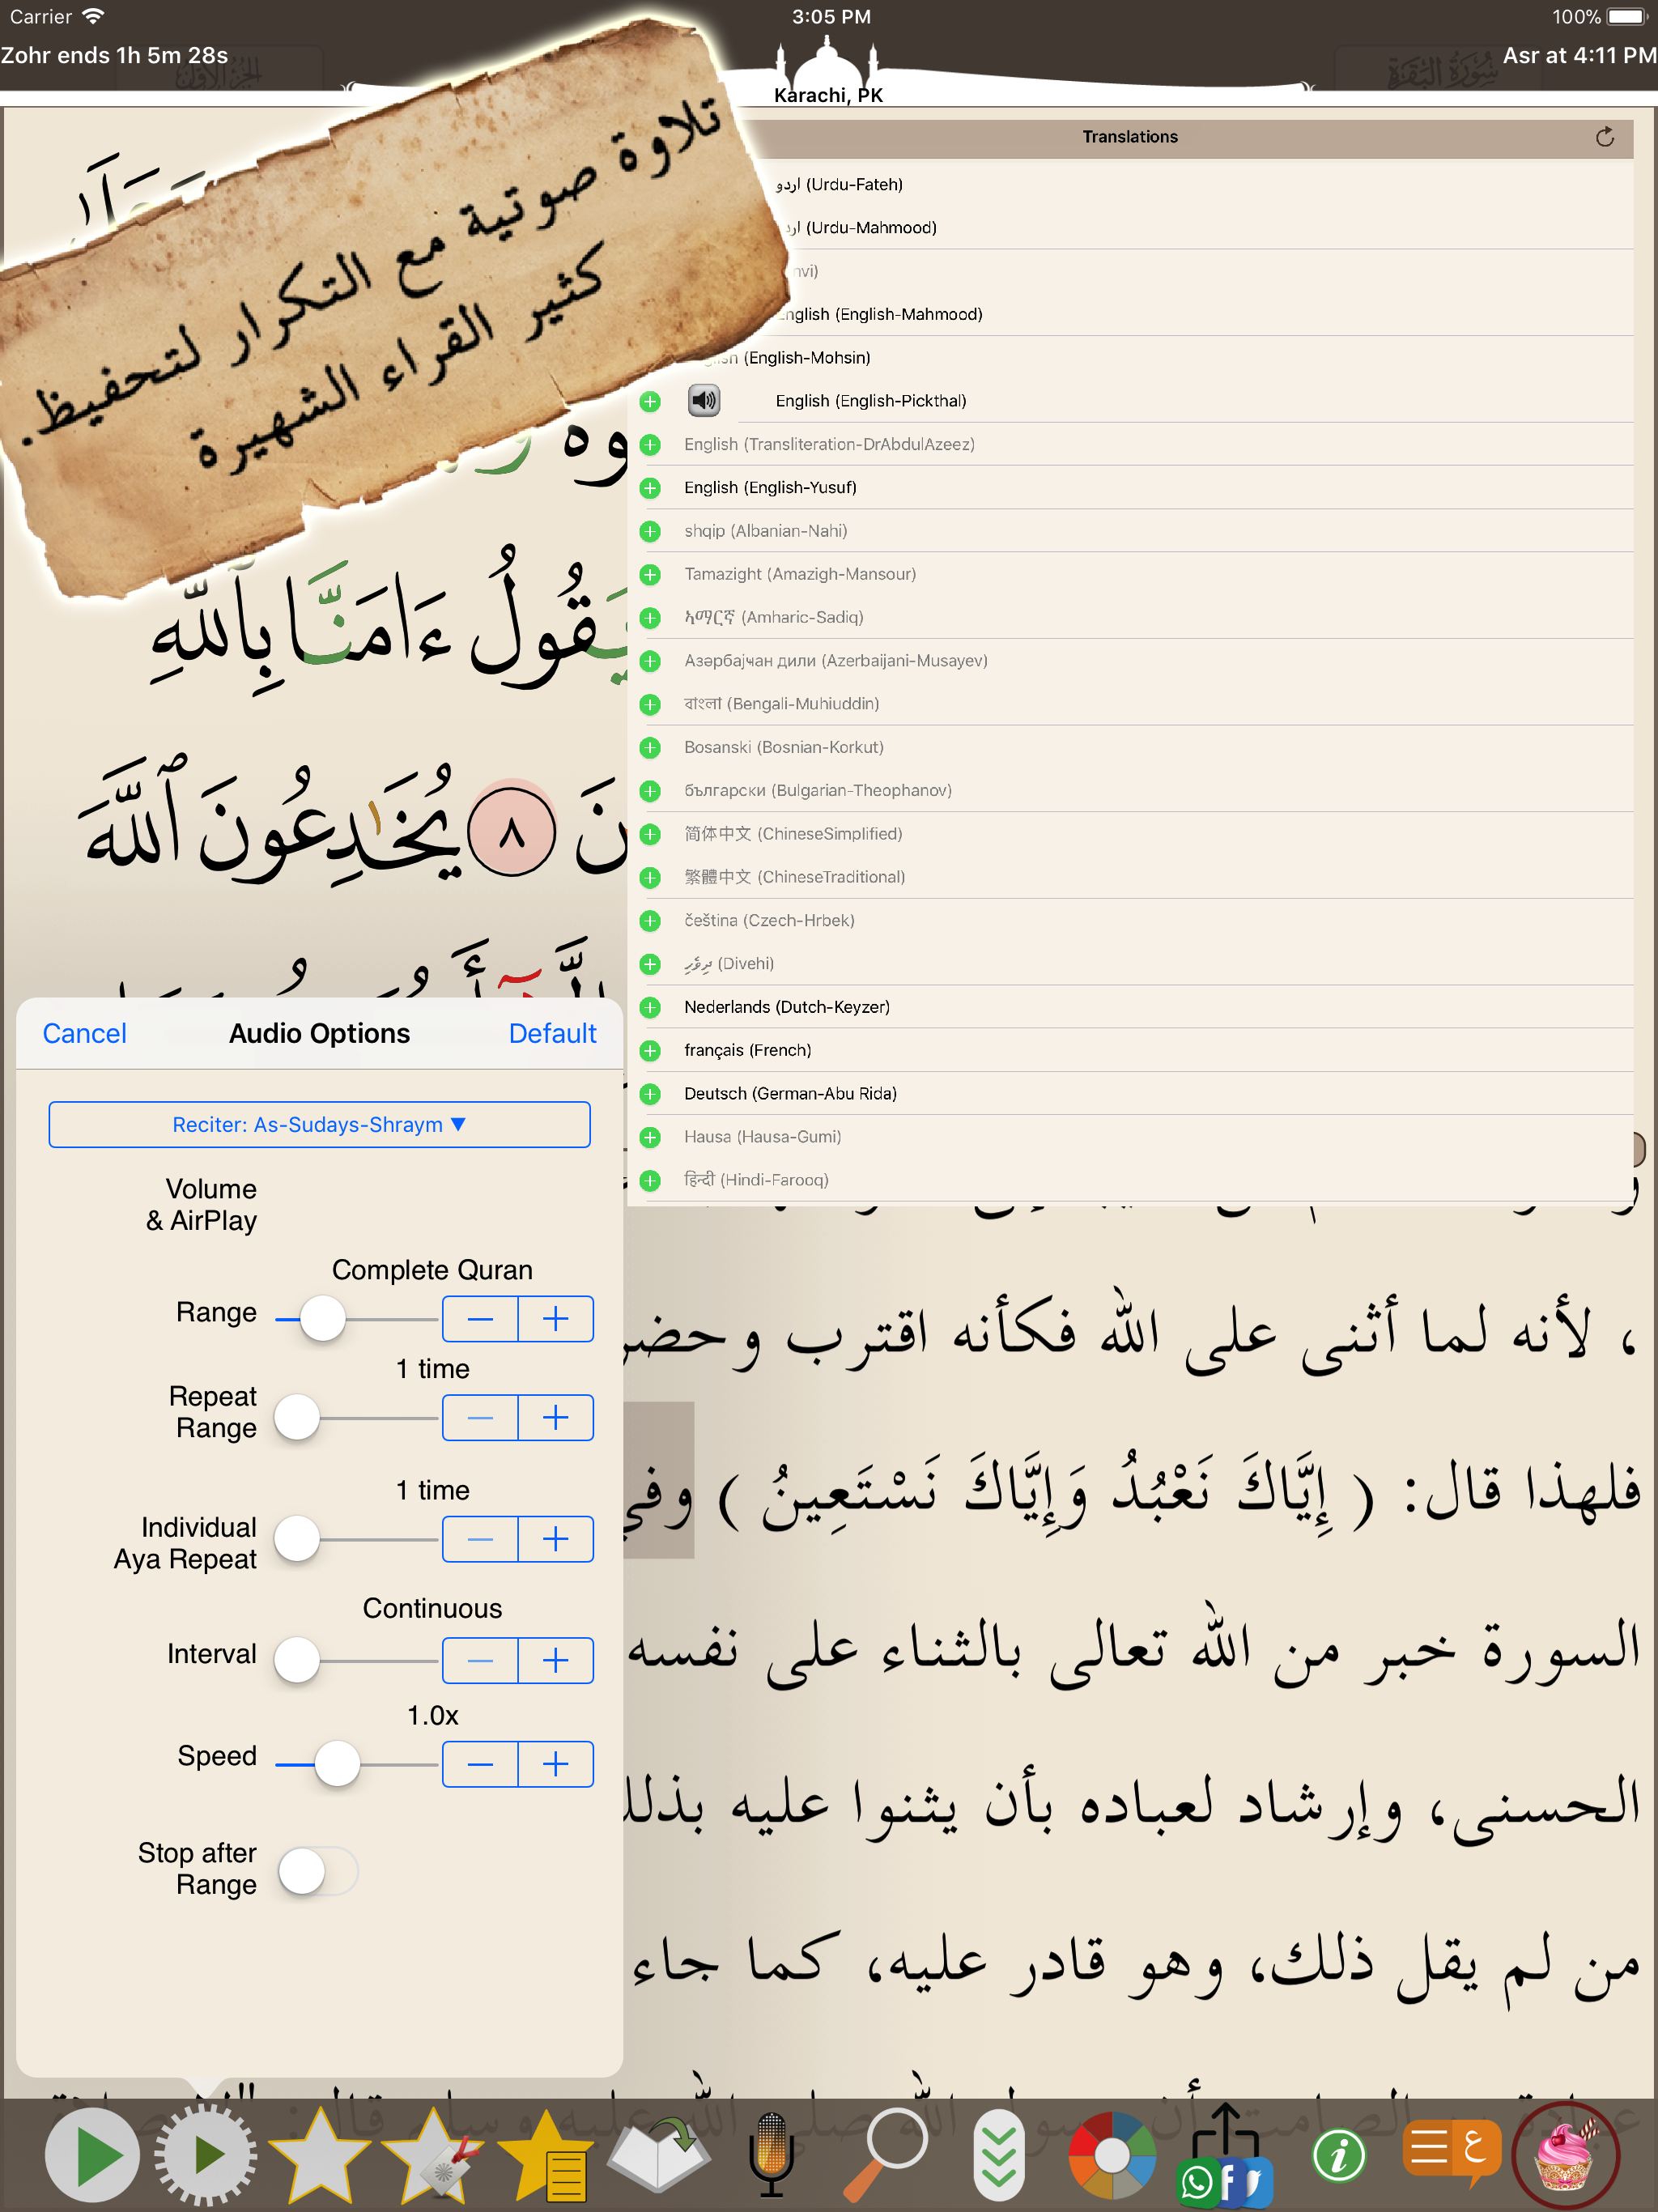 Carrier
3:05 PM
100%
Zohr ends 1h 5m 28s
Asr at 4:11 PM
Karachi, PK
تلاوة صوتية مع التكرار لتحفيظ.
كثير القراء الشهيرة
Translations
اردو (Urdu-Fateh)
(Urdu-Mahmood)
English (English-Mahmood)
(English-Mohsin)
English (English-Pickthal)
English (Transliteration-DrAbdulAzeez)
English (English-Yusuf)
shqip (Albanian-Nahi)
Tamazight (Amazigh-Mansour)
አማርኛ (Amharic-Sadiq)
Азәрбајҹан дили (Azerbaijani-Musayev)
বাংলা (Bengali-Muhiuddin)
Bosanski (Bosnian-Korkut)
български (Bulgarian-Theophanov)
简体中文 (ChineseSimplified)
繁體中文 (ChineseTraditional)
čeština (Czech-Hrbek)
ދިވެހި (Divehi)
Nederlands (Dutch-Keyzer)
français (French)
Deutsch (German-Abu Rida)
Hausa (Hausa-Gumi)
हिन्दी (Hindi-Farooq)
يَقُولُ ءَامَنَّا بِٱللَّهِ
٨ يُخَـٰدِعُونَ ٱللَّهَ
Cancel
Audio Options
Default
Reciter: As-Sudays-Shraym ▼
Volume
& AirPlay
Complete Quran
Range
1 time
Repeat
Range
1 time
Individual
Aya Repeat
Continuous
Interval
1.0x
Speed
Stop after
Range
، لأنه لما أثنى على الله فكأنه اقترب وحضر
فلهذا قال: ( إِيَّاكَ نَعْبُدُ وَإِيَّاكَ نَسْتَعِينُ ) وفي
السورة خبر من الله تعالى بالثناء على نفسه
الحسنى، وإرشاد لعباده بأن يثنوا عليه بذلك
من لم يقل ذلك، وهو قادر عليه، كما جاء